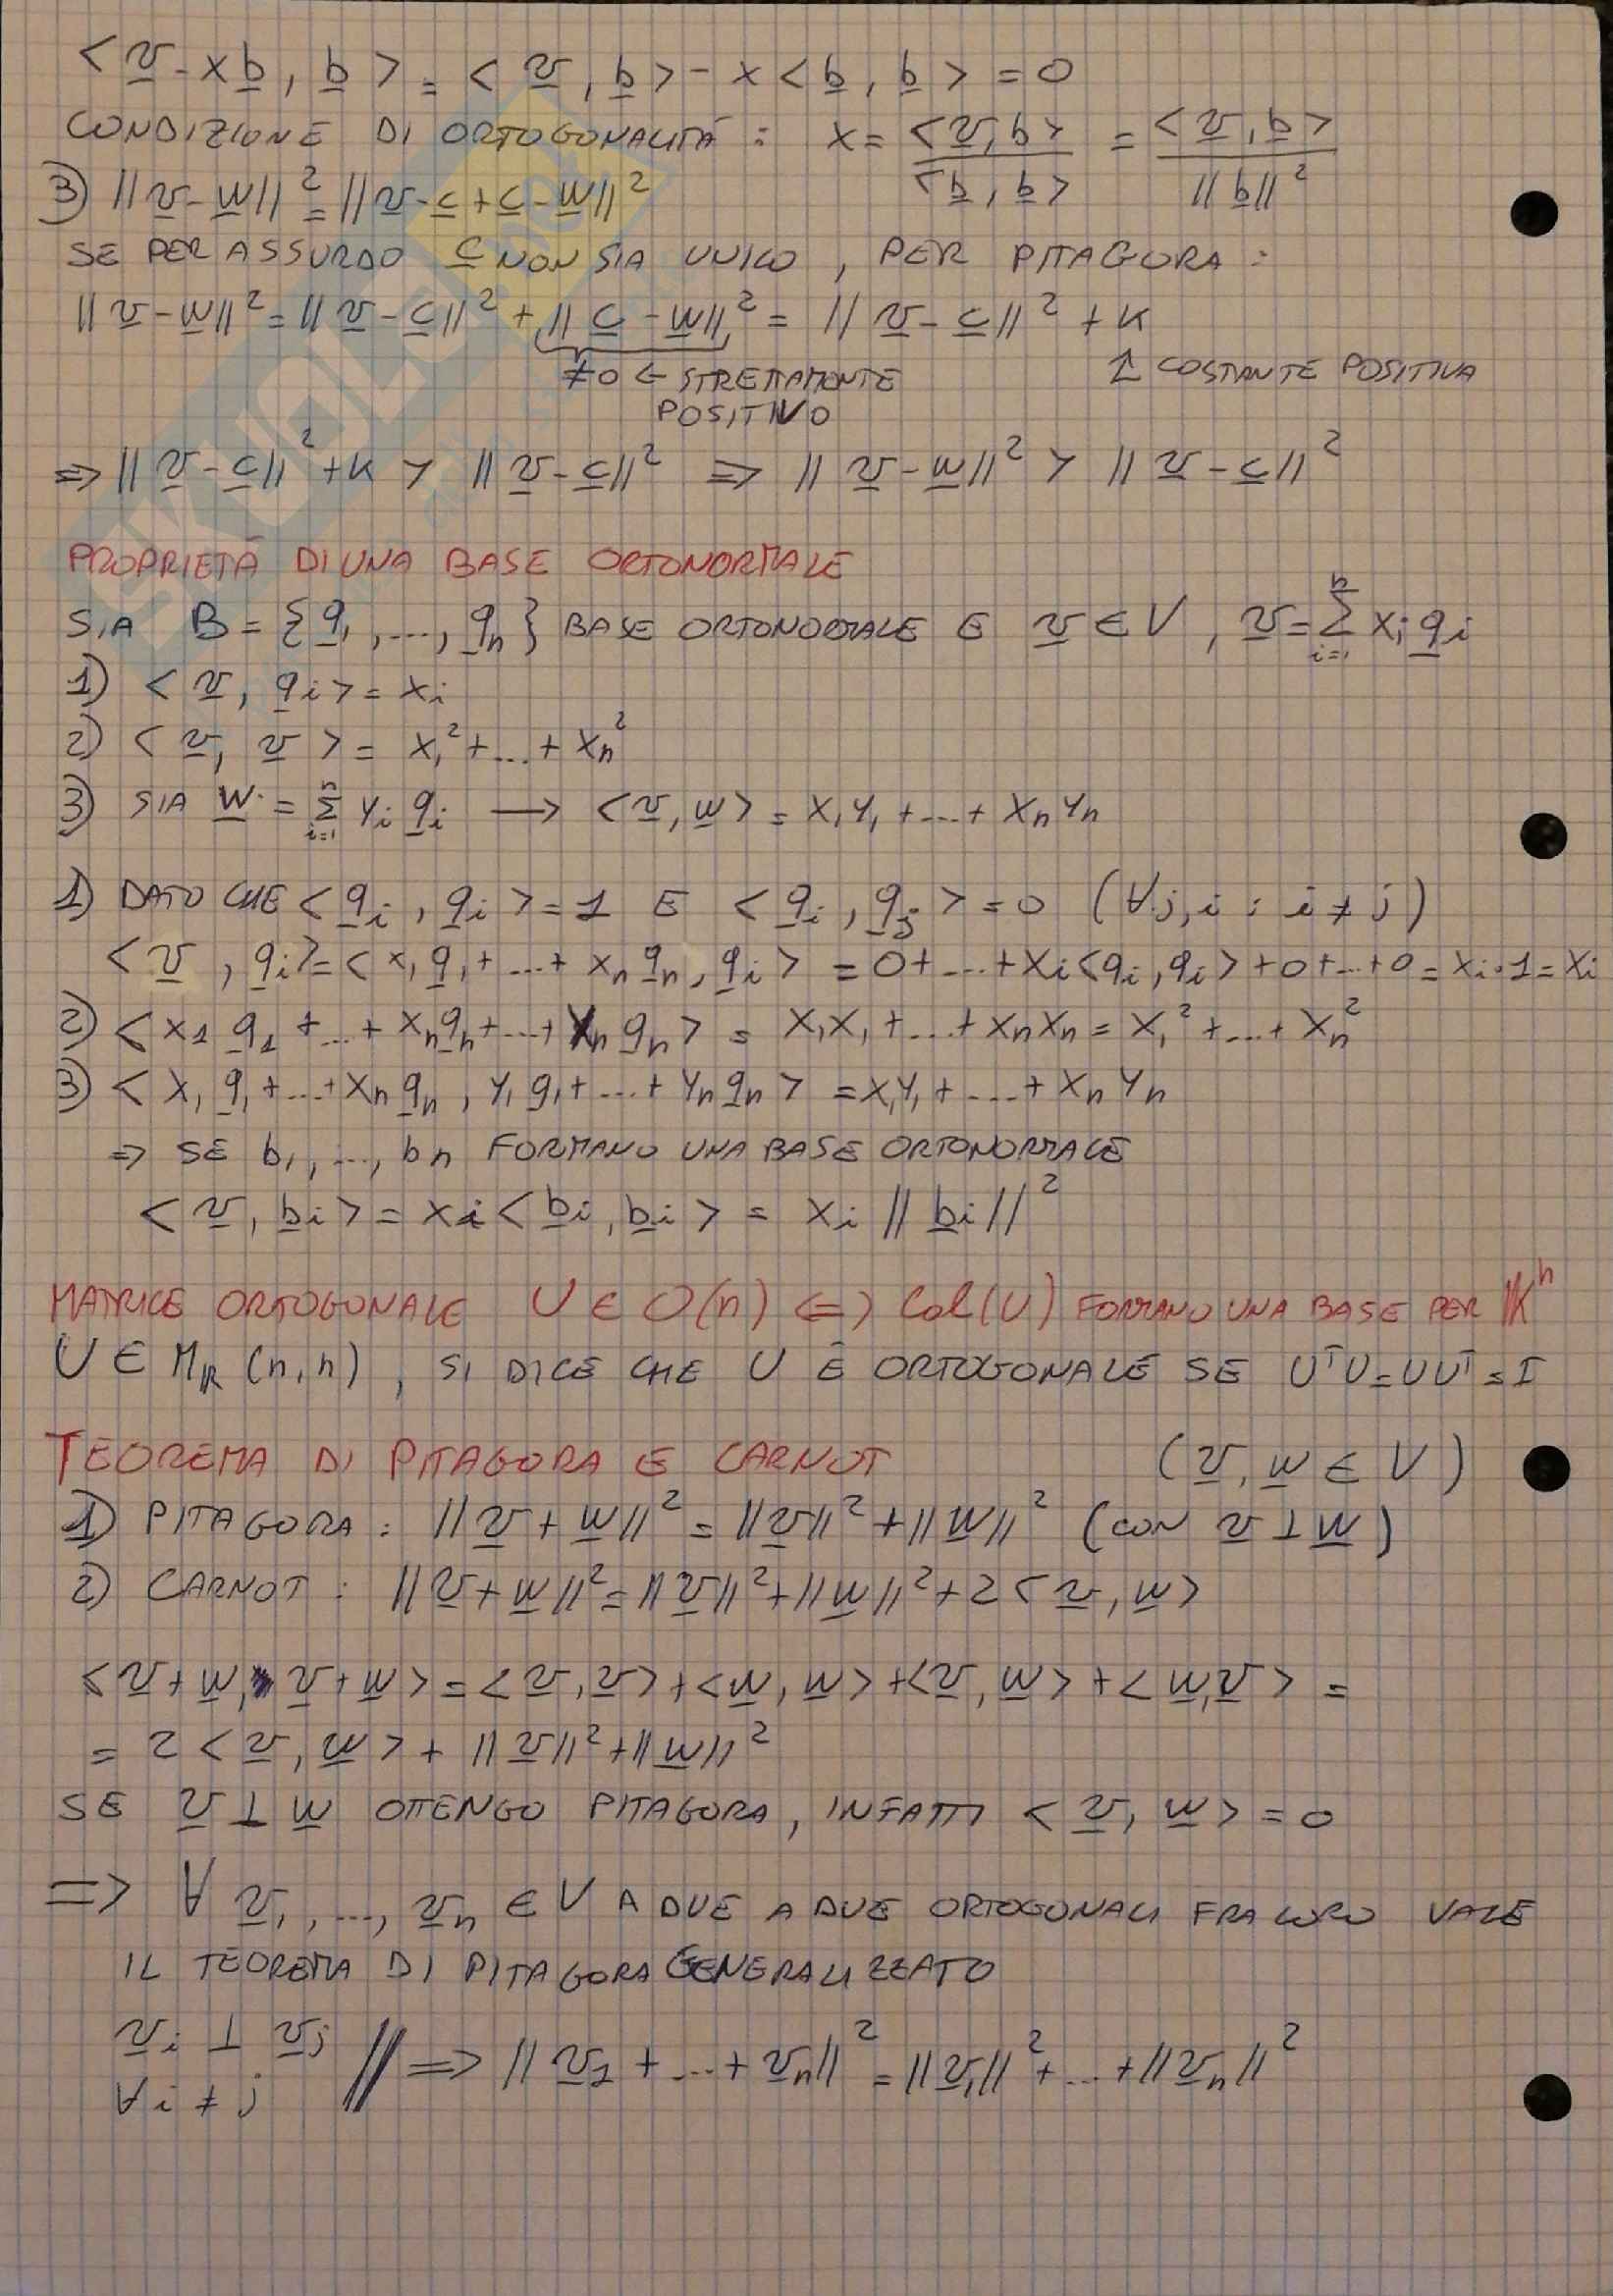 < v - x b , b > = < v , b > - x < b , b > = 0
CONDIZIONE DI ORTOGONALITÀ : x = <v,b> / <b,b> = <v,b> / ||b||²
3) ||v - w||² = ||v - c + c - w||²
SE PER ASSURDO c NON SIA UNICO , PER PITAGORA :
||v - w||² = ||v - c||² + ||c - w||² = ||v - c||² + K
≠0 ← STRETTAMENTE POSITIVO ↑ COSTANTE POSITIVA
⇒ ||v - c||² + K > ||v - c||² ⇒ ||v - w||² > ||v - c||²
PROPRIETÀ DI UNA BASE ORTONORMALE
SIA B = {q₁ , ..., qn} BASE ORTONORMALE E v ∈ V , v = Σᵢ₌₁ⁿ xᵢ qᵢ
1) < v , qi > = xi
2) < v , v > = x₁² + ... + xn²
3) SIA w = Σᵢ₌₁ⁿ yᵢ qᵢ → < v , w > = x₁y₁ + ... + xn yn
1) DATO CHE < qi , qi > = 1 E < qi , qj > = 0 (∀j,i : i ≠ j)
< v , qi > = < x₁ q₁ + ... + xn qn , qi > = 0 + ... + xi < qi , qi > + 0 + ... + 0 = xi · 1 = xi
2) < x1 q1 + ... + xn qn + ... + xn qn > = x₁x₁ + ... + xn xn = x₁² + ... + xn²
3) < x₁ q₁ + ... + xn qn , y₁ q₁ + ... + yn qn > = x₁y₁ + ... + xn yn
⇒ SE b₁ , ..., bn FORMANO UNA BASE ORTONORMALE
< v , bi > = xi < bi , bi > = xi ||bi||²
MATRICE ORTOGONALE U ∈ O(n) ⇔ Col(U) FORMANO UNA BASE PER Kⁿ
U ∈ M_R (n,n) , SI DICE CHE U È ORTOGONALE SE UᵀU = UUᵀ = I
TEOREMA DI PITAGORA E CARNOT (v, w ∈ V)
1) PITAGORA : ||v + w||² = ||v||² + ||w||² (CON v ⊥ w)
2) CARNOT : ||v + w||² = ||v||² + ||w||² + 2 < v , w >
< v + w , v + w > = < v , v > + < w , w > + < v , w > + < w , v > =
= 2 < v , w > + ||v||² + ||w||²
SE v ⊥ w OTTENGO PITAGORA , INFATTI < v , w > = 0
⇒ ∀ v₁ , ..., vn ∈ V A DUE A DUE ORTOGONALI FRA LORO VALE
IL TEOREMA DI PITAGORA GENERALIZZATO
vi ⊥ vj ∀ i ≠ j // ⇒ ||v1 + ... + vn||² = ||v₁||² + ... + ||vn||²